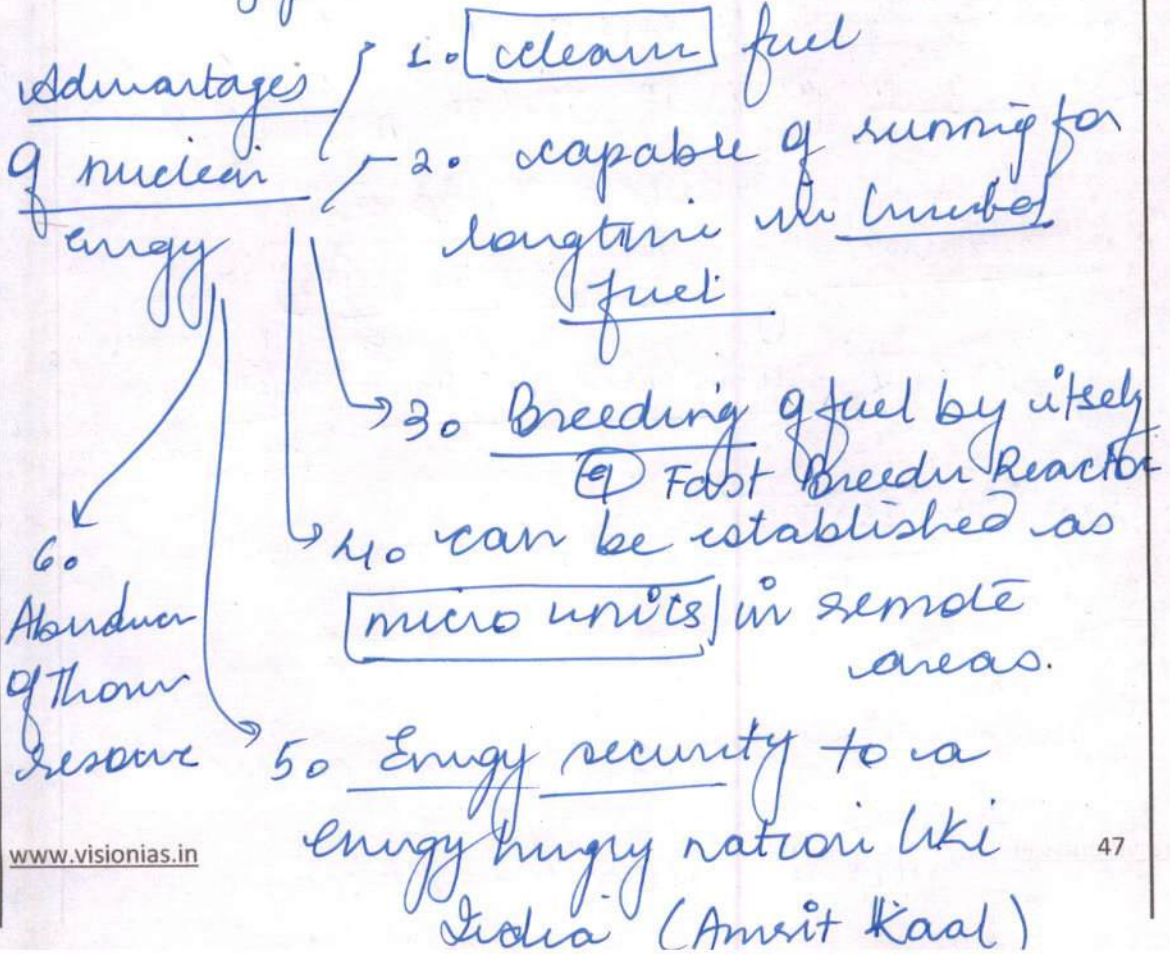 Advantages
of nuclear
energy
1. clean fuel
2. capable of running for
longtime in limited
fuel
3. Breeding of fuel by itself
eg Fast Breeder Reactor
4. can be established as
micro units in remote
areas.
5. Energy security to a
energy hungry nation like
India (Amrit Kaal)
6.
Abundance
of Thorium
resource
www.visionias.in
47